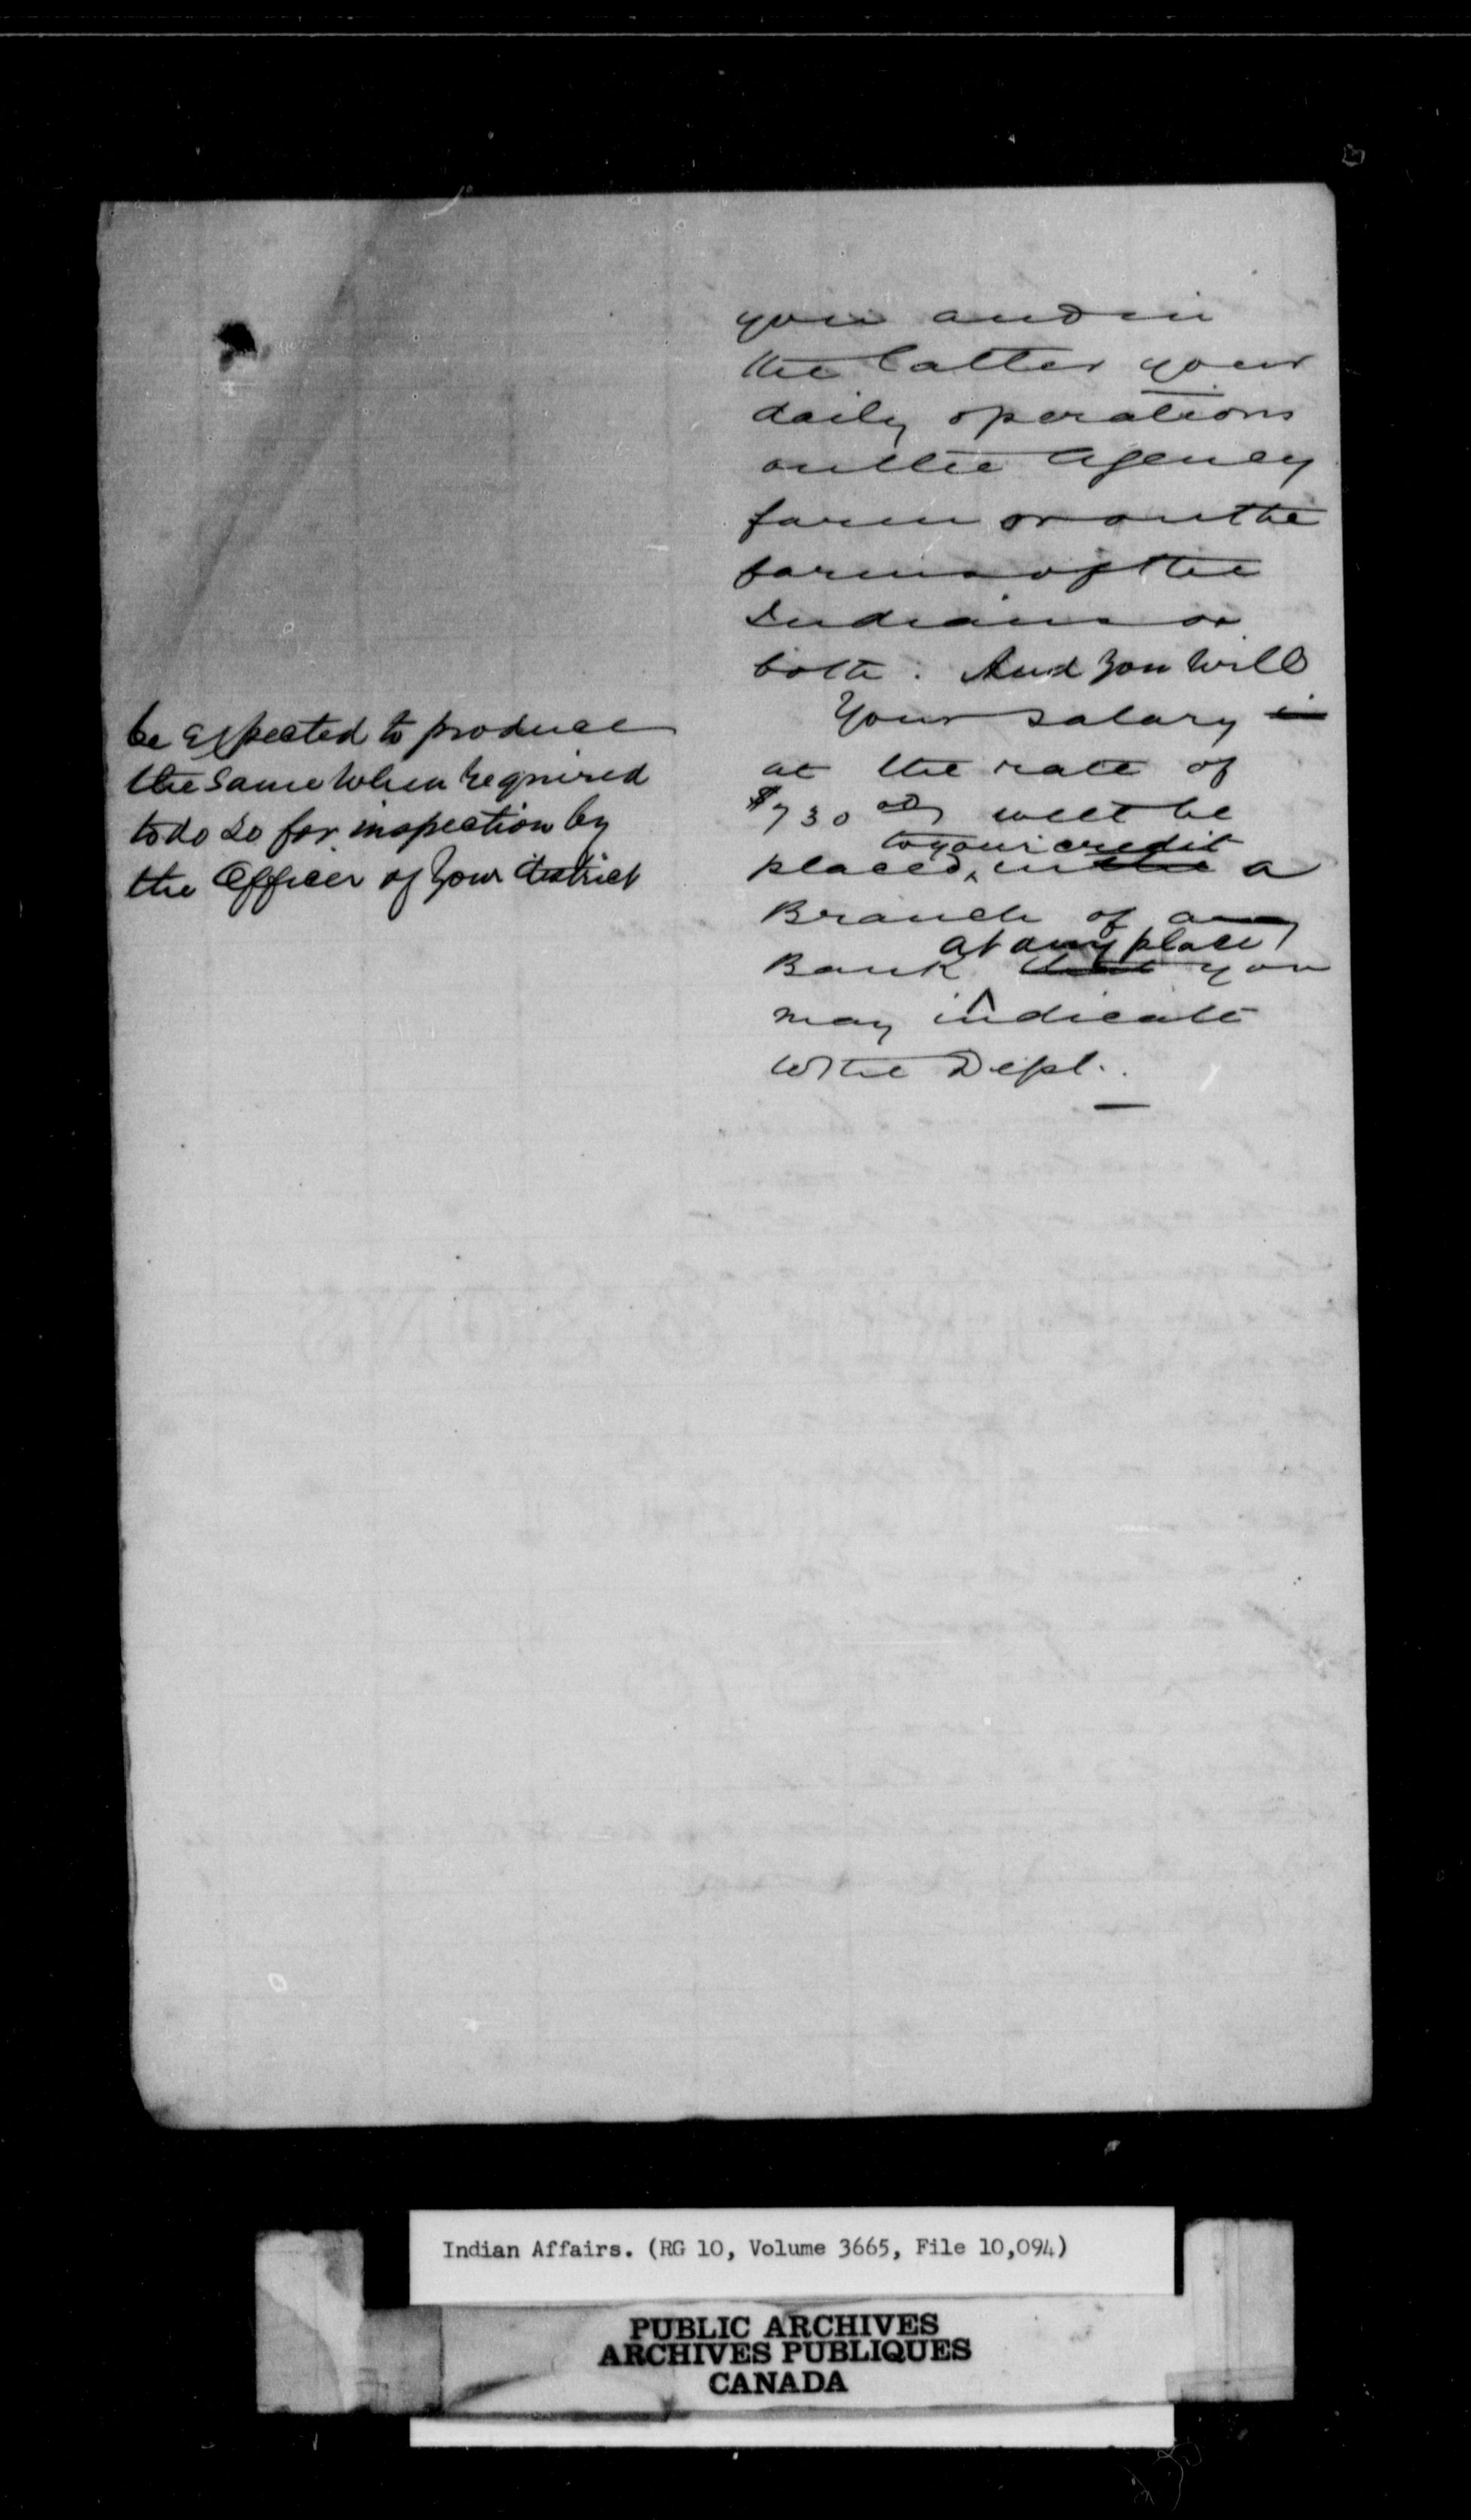 you and in
the latter your
daily operations
on the Agency
farm or on the
farms of the
Indians or
both. And you will
be expected to produce
the same when required
to do so for inspection by
the Officer of your district
Your salary in
at the rate of
$730 00 will be
to your credit
placed, in the a
Branch of any
at any place
Bank that you
may indicate
to the Dept.
Indian Affairs. (RG 10, Volume 3665, File 10,094)
PUBLIC ARCHIVES
ARCHIVES PUBLIQUES
CANADA